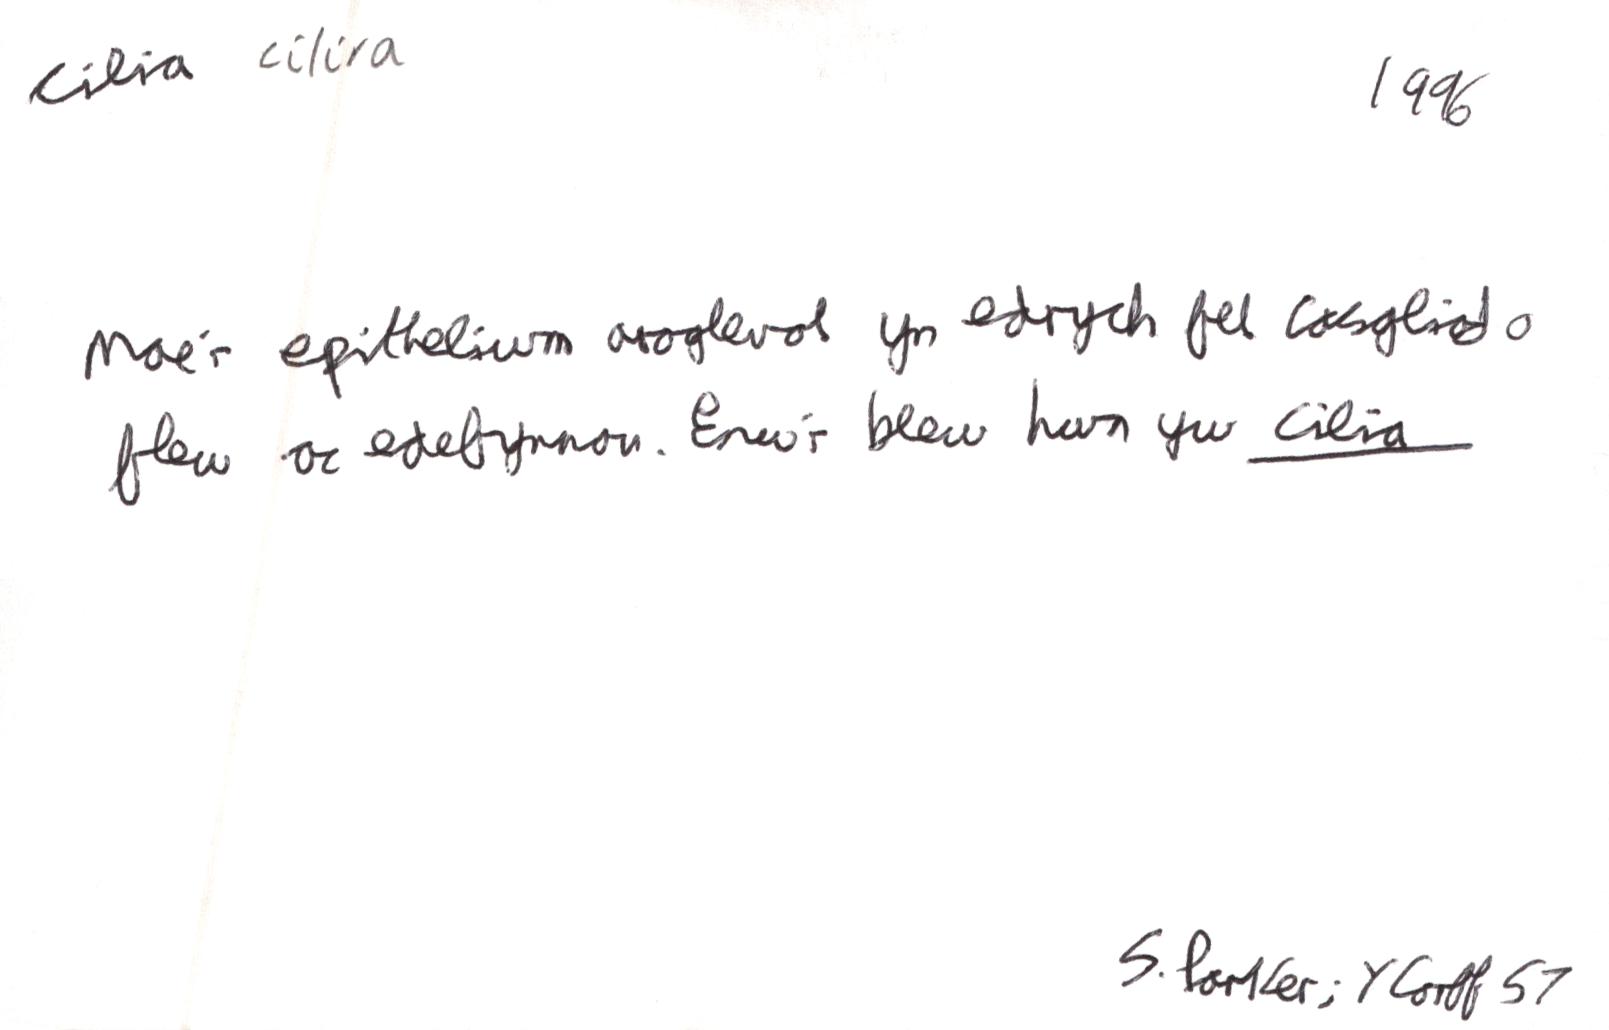 cilia cilira 1996
Mae'r epithelium arogleuol yn edrych fel casgliad o
flew ac edefynnau. Enw'r blew hwn yw cilia
S. Parker; Y Corff 57